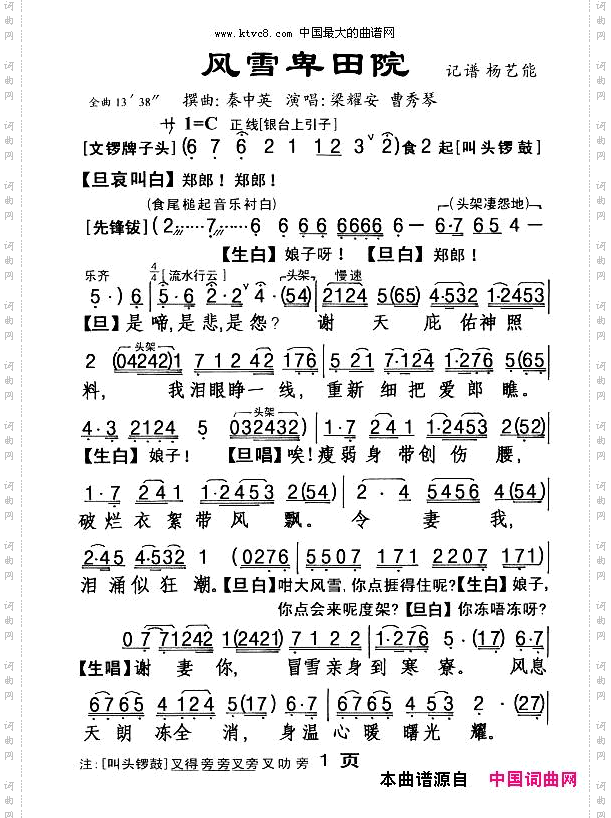 www.ktvc8.com 中国最大的曲谱网
风雪卑田院 记谱 杨艺能
全曲13′38″ 撰曲:秦中英 演唱:梁耀安 曹秀琴
サ 1=C 正线[银台上引子]
[文锣牌子头] (6 7 6 2 1 12 3 ˅ 2) 食2起[叫头锣鼓]
【旦哀叫白】郑郎!郑郎!
(食尾槌起音乐衬白) (头架凄怨地)
[先锋钹] (2……7……6 6 6 6 6666 6 — 6·7 65 4 —
【生白】娘子呀!【旦白】郑郎!
乐齐 4/4 [流水行云] 头架 慢速
5 · ) 6 | 5·6 2·2 ˅ 4·(54) | 2124 5(65) 4·532 1·2453 |
【旦】是啼,是悲,是怨? 谢天庇佑神照
头架
2 (04242)1 7 1242 176 | 5 21 7·124 1·276 5(65) |
料, 我泪眼睁一线,重新细把爱郎瞧。
头架
4·3 2124 5 032432) | 1·7 241 1·2453 2(52) |
【生白】娘子!【旦唱】唉!瘦弱身带创伤腰,
1·7 241 1·2453 2(54) | 2 · 4 5456 4(54) |
破烂衣絮带风飘。令妻我,
2·45 4·532 1 (0276 | 5·5505 7·124 2207 171) |
泪涌似狂潮。【旦白】咁大风雪,你点捱得住呢?【生白】娘子,
你点会来呢度架?【旦白】你冻唔冻呀?
0 7 71242 1(2421) | 7 122 1·276 5·(17) 6·7 |
【生唱】谢妻你,冒雪亲身到寒寮。风息
6765 4124 5(17) 6·7 | 6765 4124 4·53 2·(27) |
天朗冻全消,身温心暖曙光耀。
注:[叫头锣鼓]叉得旁旁叉旁叉叻旁 1 页
本曲谱源自 中国词曲网
词曲网
词曲网
词曲网
词曲网
词曲网
词曲网
词曲网
词曲网
词曲网
词曲网
词曲网
词曲网